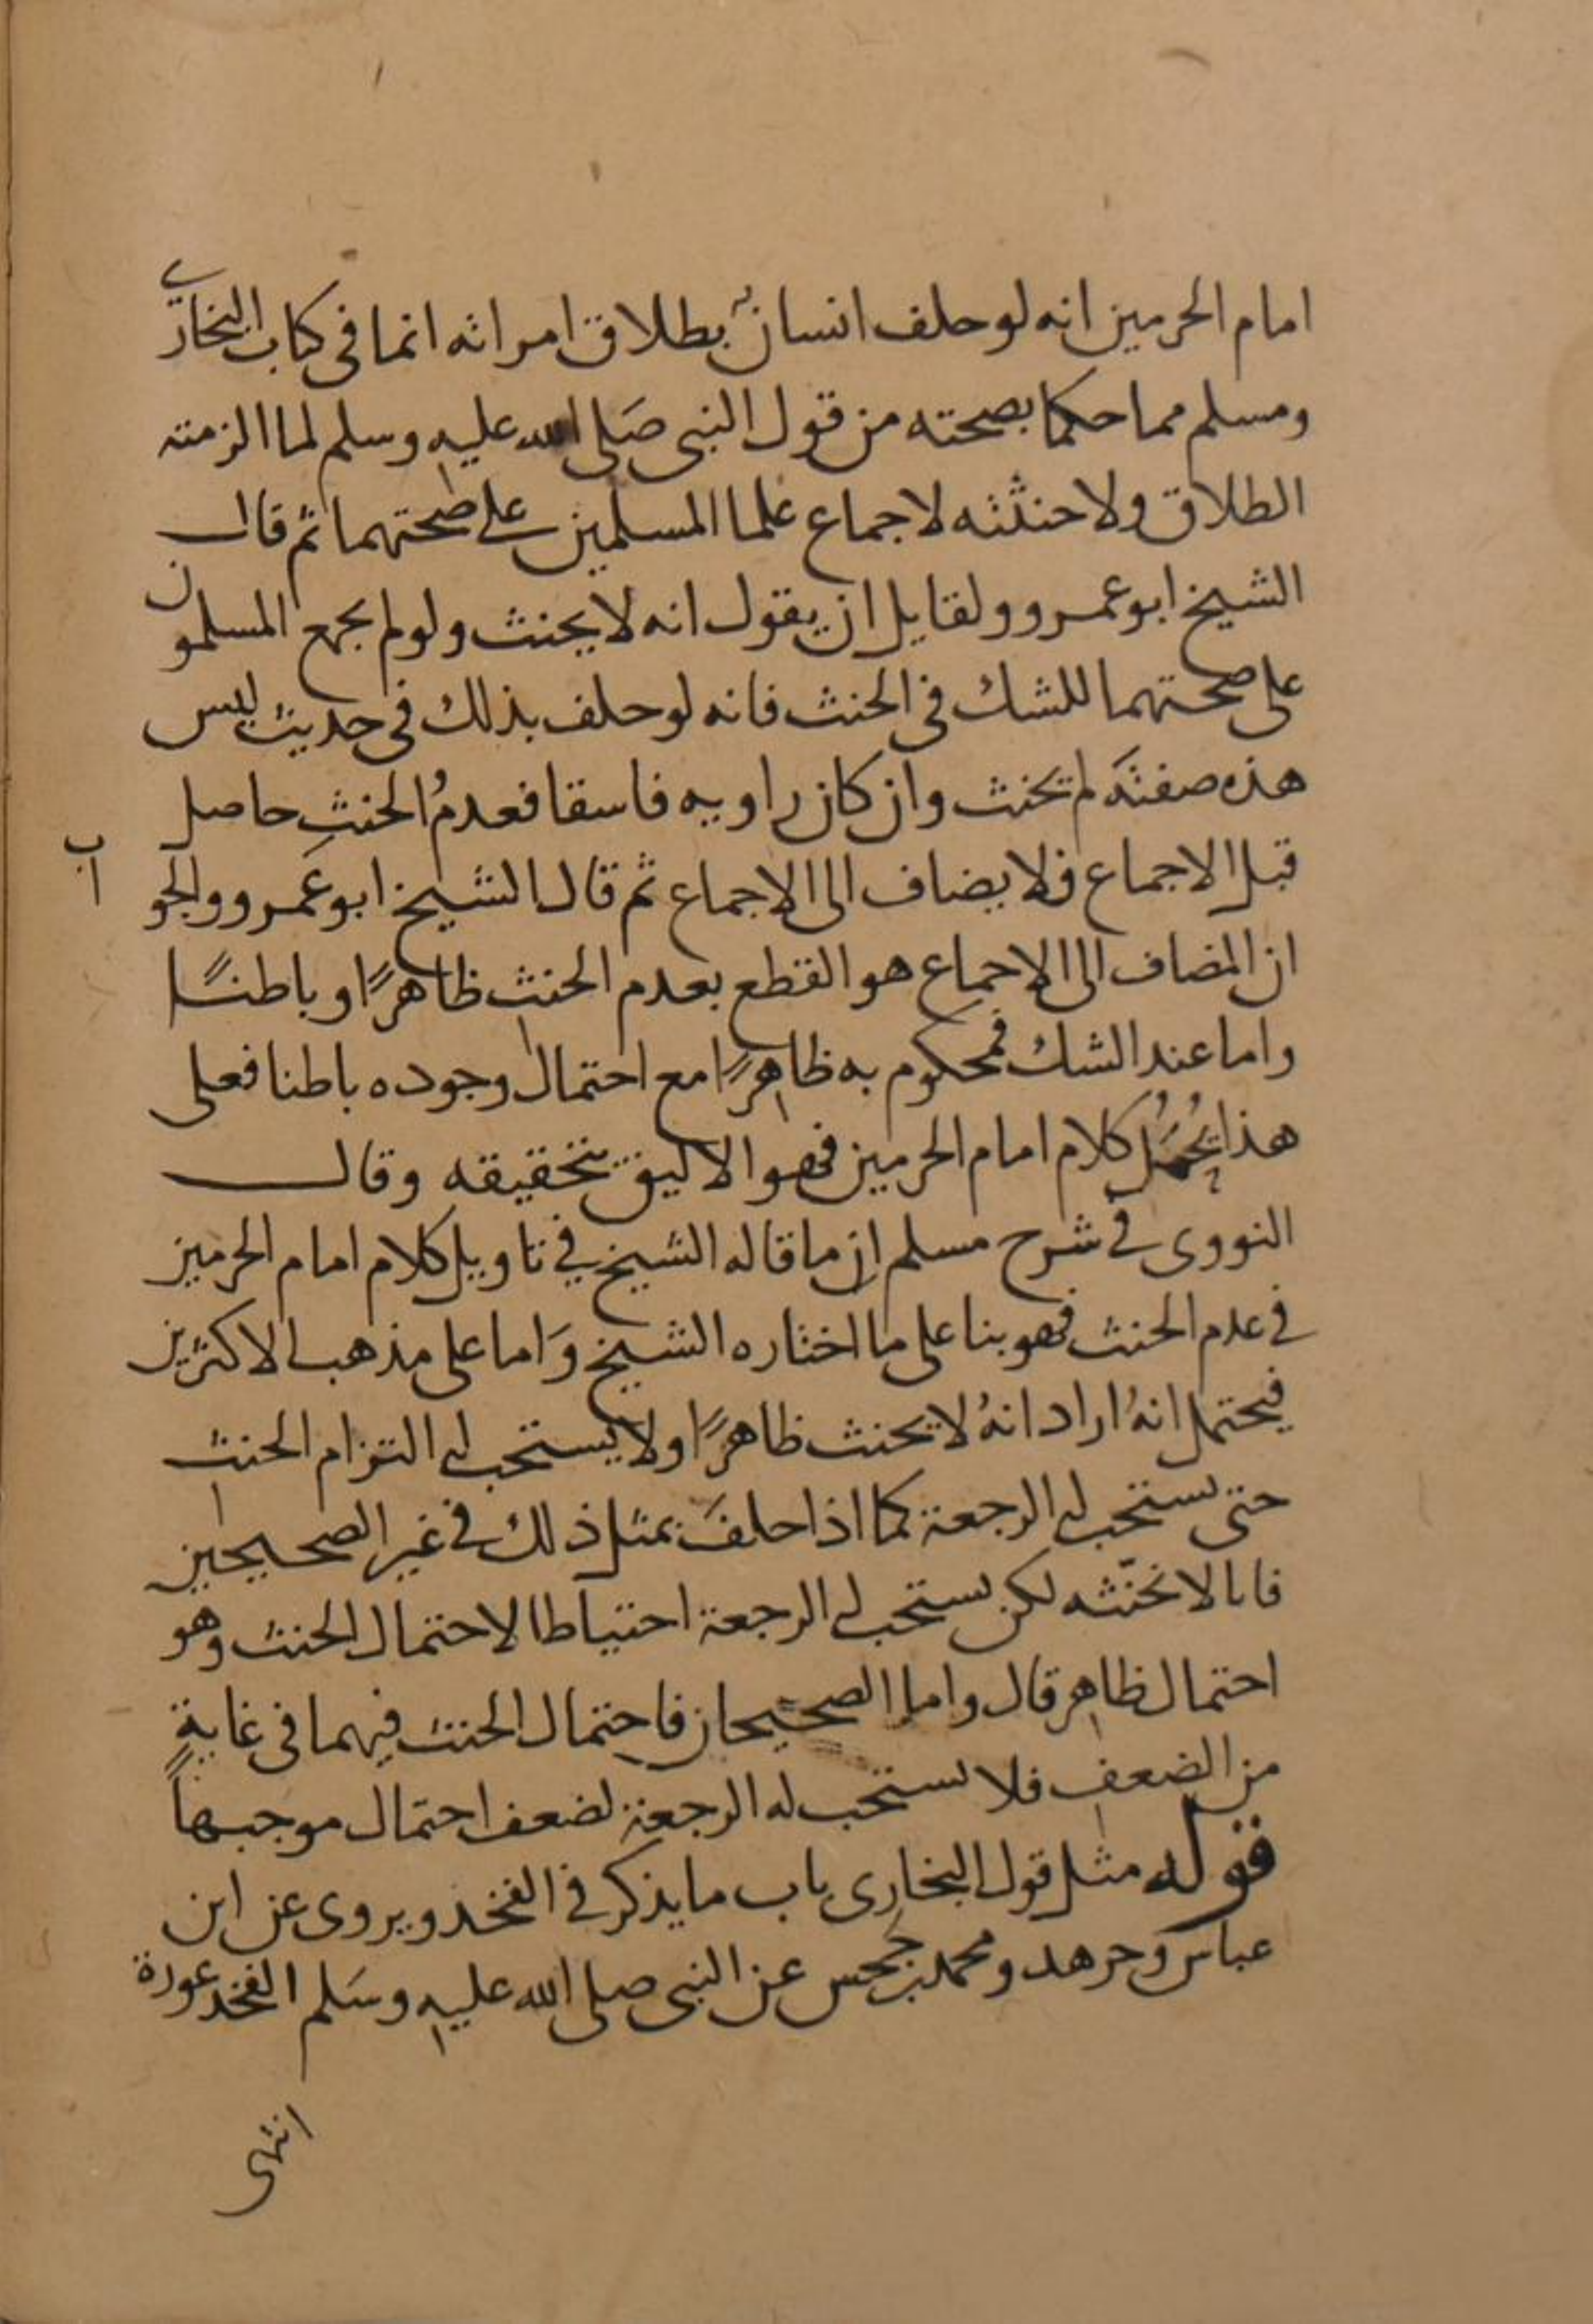 امام الحرمين انه لو حلف انسان بطلاق امراته انما في كتاب البخاري
ومسلم مما حكما بصحته من قول النبي صَلى الله عليه وسلم لما الزمته
الطلاق ولا حنثته لاجماع علما المسلمين على صحتهما ثم قال
الشيخ ابو عمرو ولقايل ان يقول انه لا يحنث ولو لم يجمع المسلمون
على صحتهما للشك في الحنث فانه لو حلف بذلك في حديث ليس
هذه صفته لم يحنث وان كان راويه فاسقا فعدمُ الحنثِ حاصل
قبل الاجماع فلا يضاف الى الاجماع ثم قال الشيخ ابو عَمرو والجواب
ان المضاف الى الاجماع هو القطع بعدم الحنث ظاهرًا وباطنًا
واما عند الشك فمحكوم به ظاهرًا مع احتمال وجوده باطنا فعلى
هذا يُحْمَلُ كلام امام الحرمين فهو الاليق بتحقيقه وقال
النووي في شرح مسلم ان ما قاله الشيخ في تاويل كلام امام الحرمين
في عدم الحنث فهو بنا على ما اختاره الشيخ وَاما على مذهب الاكثرين
فيحتمل انهُ اراد انهُ لا يحنث ظاهرًا ولا يستحب له التزام الحنث
حتى يستحب له الرجعة كما اذا حلفَ بمثل ذلك في غير الصحيحين
فانا لا نحنّثه لكن يستحب له الرجعة احتياطا لاحتمال الحنث وهو
احتمال ظاهر قال واما الصحيحان فاحتمال الحنث فيهما في غاية
من الضعف فلا يستحب له الرجعة لضعف احتمال موجبها
قوله مثل قول البخاري باب ما يذكر في الفخذ ويروى عن ابن
عباس وجرهد ومحمد بن جحس عن النبي صلى الله عليه وسَلم الفخذ عورة
انتهى